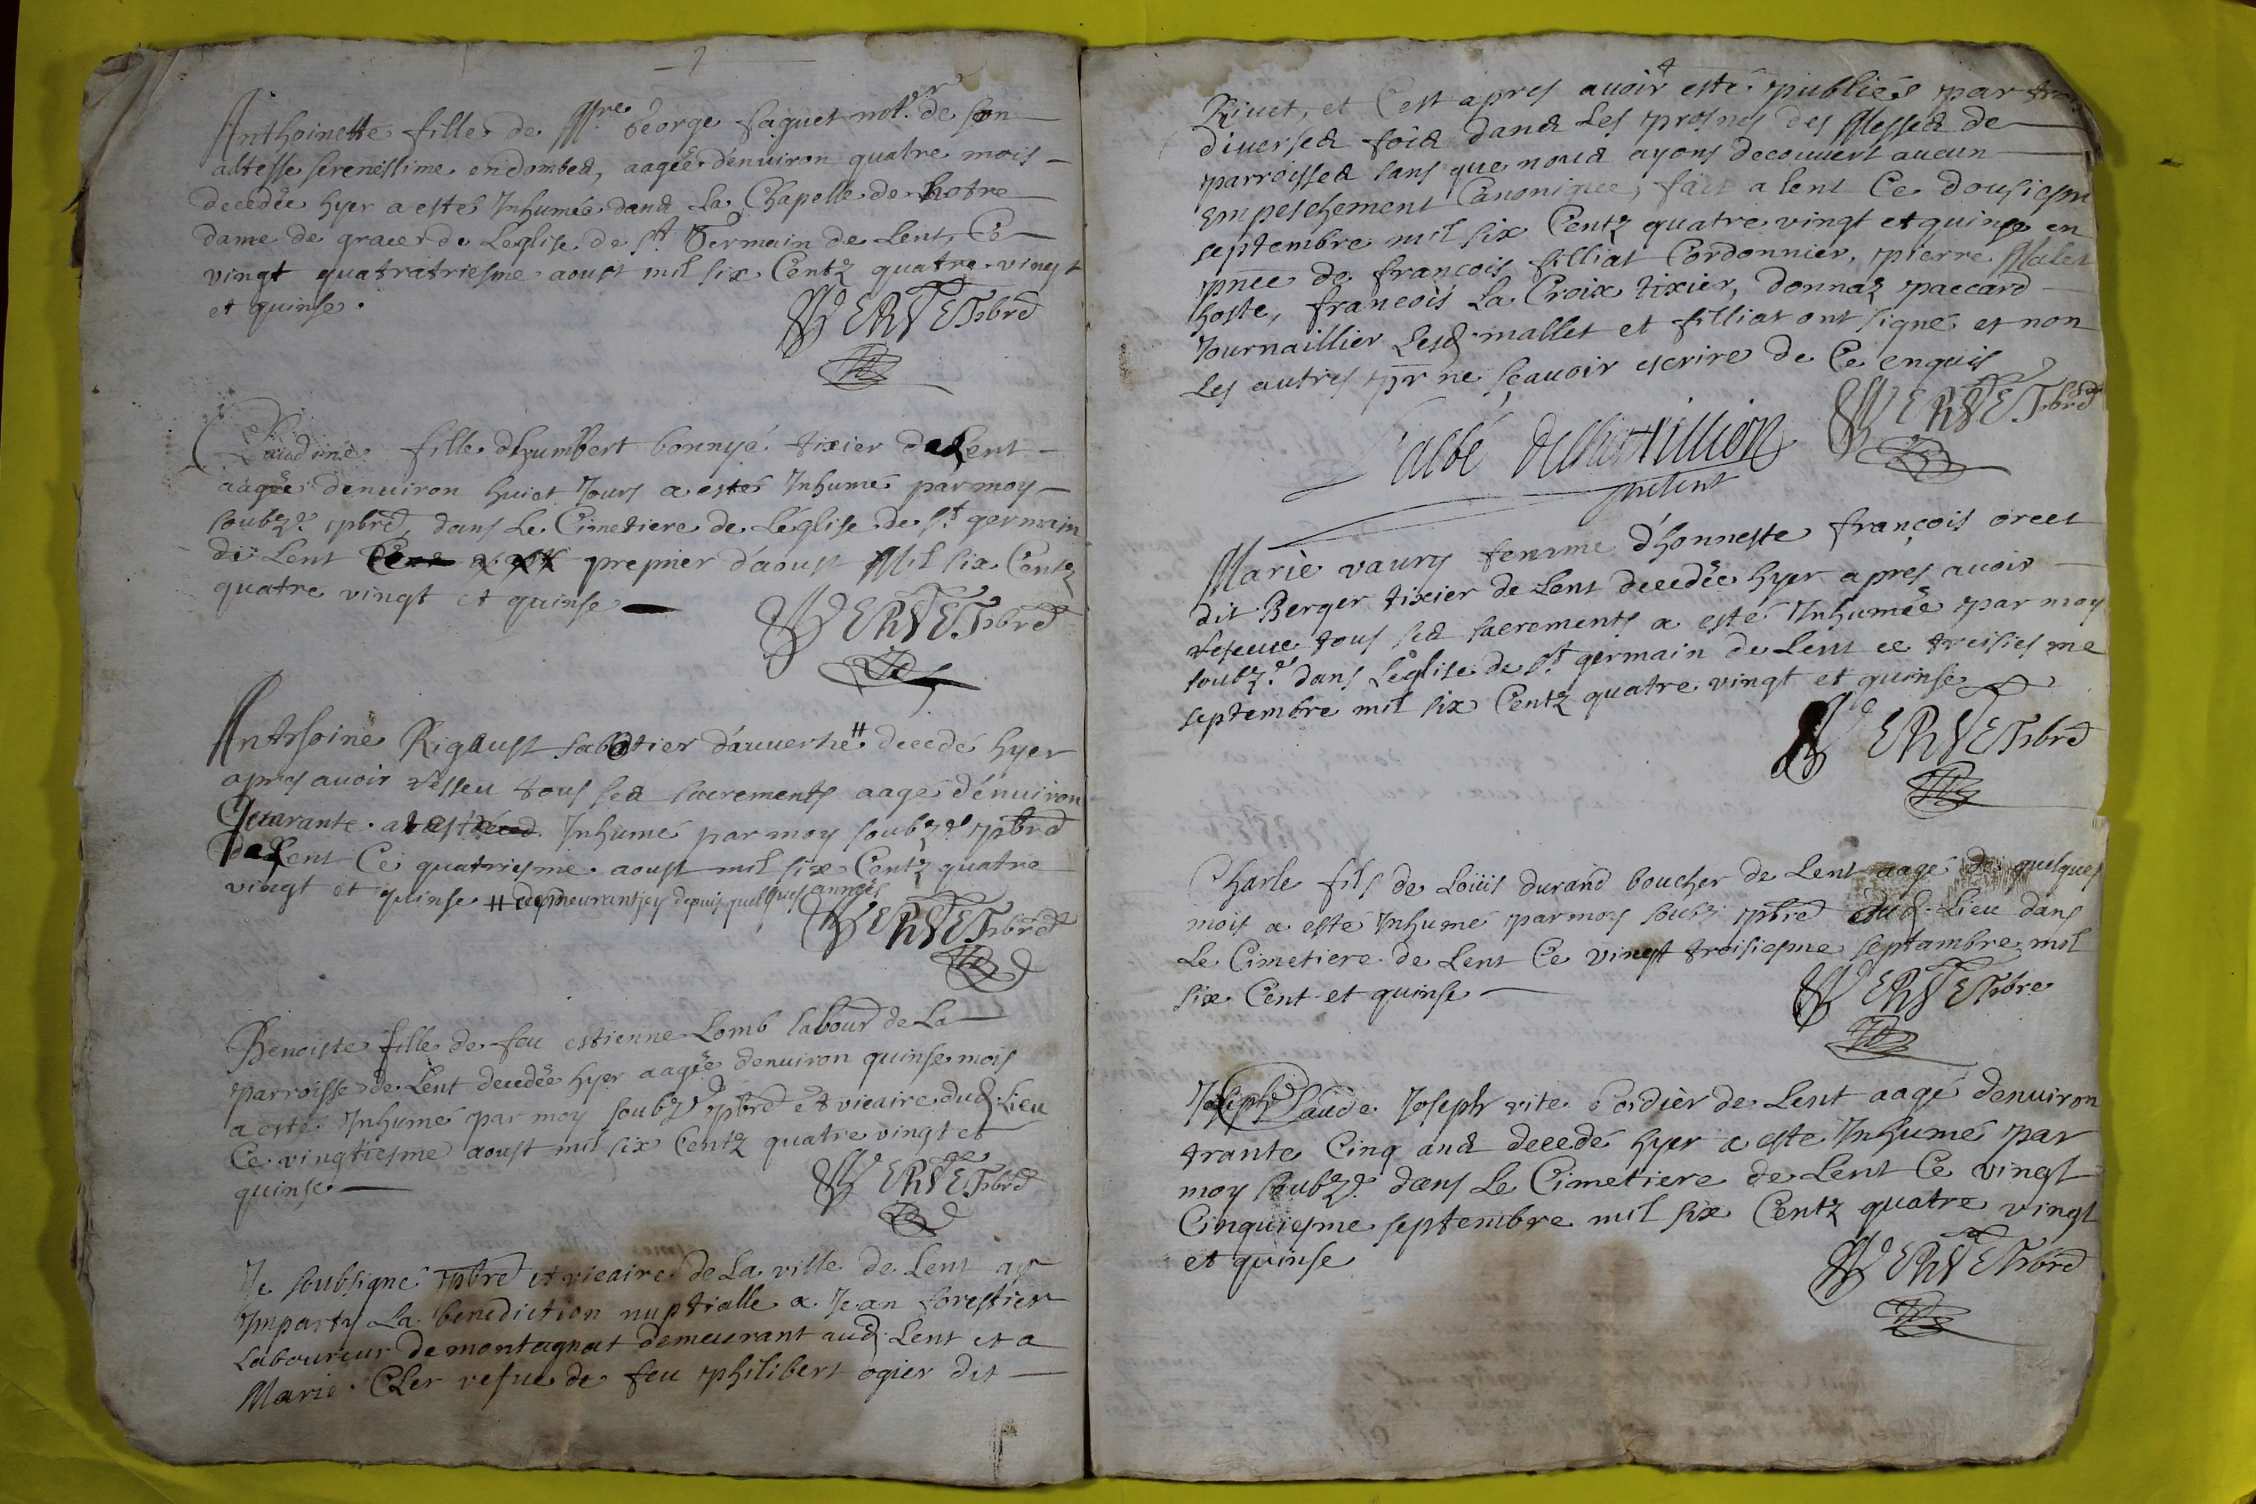 Anthoinette fille de Mre George faguet notr. de son
altesse serenissime en dombes, aagée d'enuiron quatre mois
decedée hyer a esté Inhumée dans La Chapelle de Notre
dame de graces de Leglise de st Germain de Lent, Ce
vingt quatratriesme aoust mil six Centz quatre vingt
et quinse.
VERVET pbre
Claudine fille dhumbert bonnyé tixier de Lent
aagée denuiron huict Jours a estés Inhumé par moy
soubz.é pbre, dans Le Cimetiere de Léglise de st germain
de Lent premier d'aoust Mil six Centz
quatre vingt et quinse
VERVET pbre
Anthoine Rigaust sabotier d'auuerne # decedé hyer
apres auoir resseu tous ses sacrements aagé d'énuiron
Quarante Inhumé par moy soubz.é pbre
de Lent Ce quatriesme aoust mil six Centz quatre
vingt et quinse # demeurant icy depuis quelques années
VERVET pbre
Benoiste fille de feu estienne Lomb labour de La
parroisse de Lent decedée hyer aagée denuiron quinse mois
a esté Inhumé par moy soubz.é pbre et vicaire dud. Lieu
Ce vingtiesme aoust mil six Centz quatre vingt et
quinse
VERVET pbre
Je soubsigné pbre et vicaire de La ville de Lent ay
Imparty La benediction nuptialle a Jean forestier
Laboureur de montagnat demeurant aud. Lent et a
Marie CLer vefue de feu philibert ogier dit
Riuet, et C'est apres auoir esté publiés par
diuerses fois dans Les prosnes des Messes de
parroisses sans que nous ayons decouuert aucun
empeschement Canonique, fait a lent Ce dousiesme
septembre mil six Centz quatre vingt et quinse en
pnce de françois filliat Cordonnier, pierre Malet
hoste, françois La Croix tixier, donnaz paccard
Journaillier Lesd. mallet et filliat ont signé et non
Les autres pr ne sçauoir escrire de Ce enquis
VERVET pbre
L'abbé de Chatillion
present
Marie vaury femme d'honneste françois orcet
dit Berger tixier de Lent decedée hyer apres auoir
reseue tous ses sacrements a esté Inhumée par moy
soubz.é dans Leglise de st germain de Lent ce treisiesme
septembre mil six Centz quatre vingt et quinse
VERVET pbre
Charle fils de Loüis durand boucher de Lent aagé de quelques
mois a esté Inhumé par moy soubz. pbre dud. Lieu dans
Le Cimetiere de Lent Ce vingt troisiesme septambre mil
six Cent et quinse
VERVET pbre
Claude Joseph vite Cordier de Lent aagé denuiron
trante Cinq ans decedé hyer a esté Inhumé par
moy soubz.é dans Le Cimetiere de Lent Ce vingt
Cinquiesme septembre mil six Centz quatre vingt
et quinse
VERVET pbre